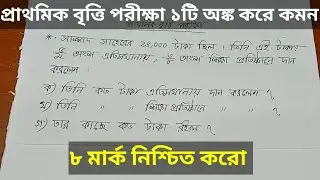 প্রাথমিক বৃত্তি পরীক্ষা ১টি অঙ্ক করে কমন
সাহেবের টাকা ছিল। তিনি এই টাকার
অংশ এতিমখানায়, অংশ শিক্ষা প্রতিষ্ঠানে দান
করলেন।
ক) তিনি কত টাকা এতিমখানায় দান করলেন?
খ) তিনি " " শিক্ষা প্রতিষ্ঠানে " " ?
গ) তার কাছে কত টাকা রইল?
৮ মার্ক নিশ্চিত করো